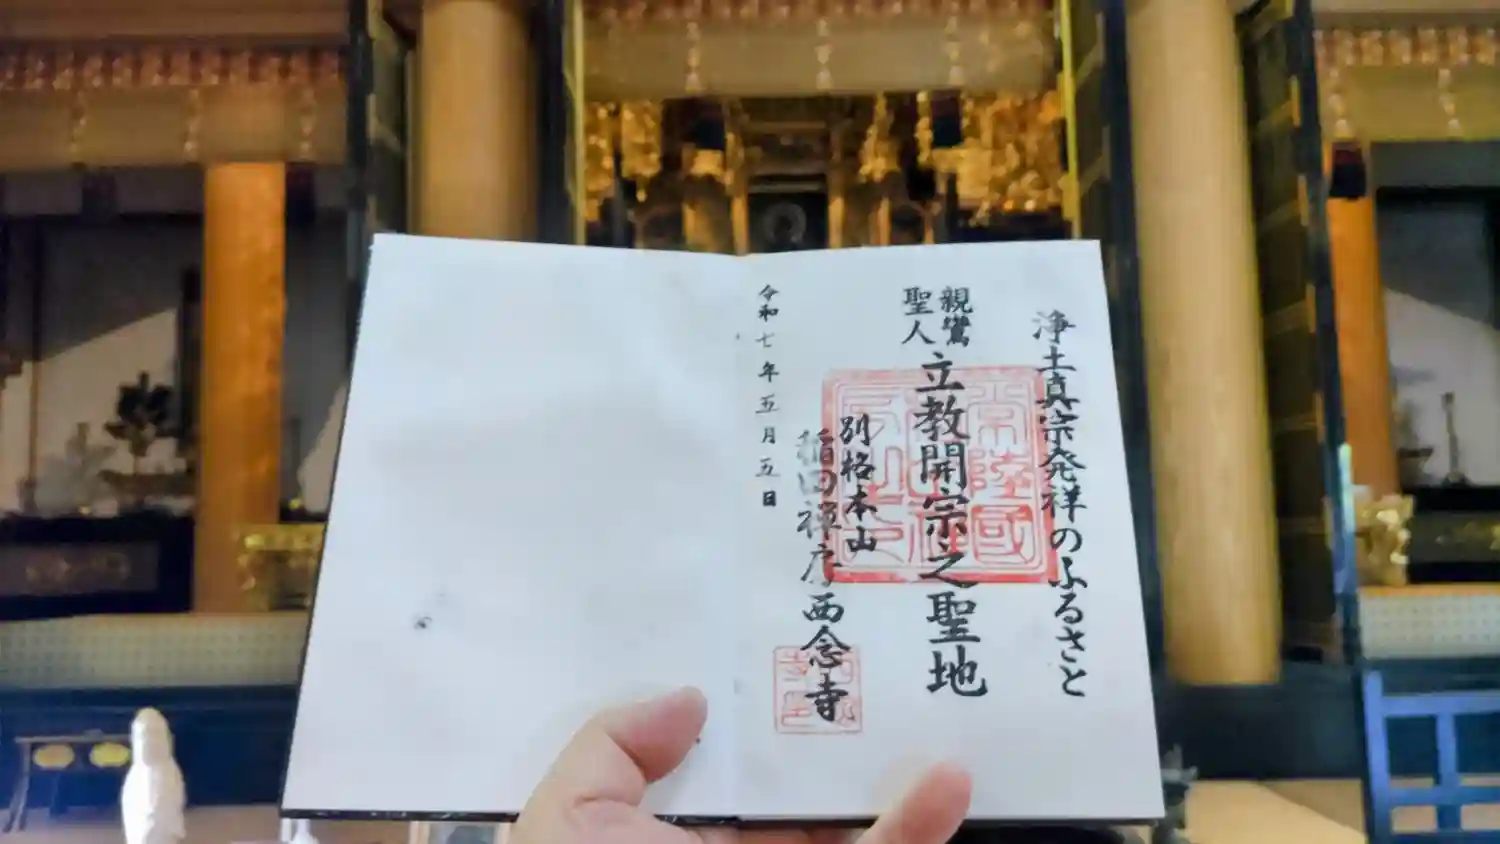 浄土真宗発祥のふるさと
親鸞
聖人
立教開宗之聖地
別格本山
稲田禅房西念寺
令和七年五月五日